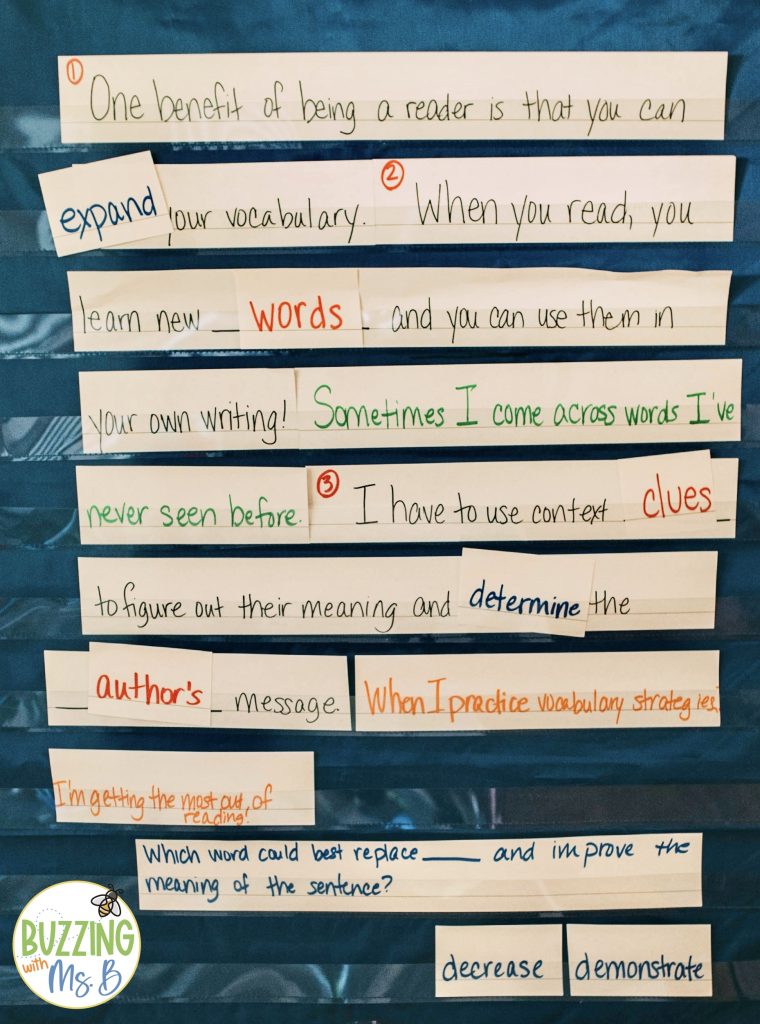 ① One benefit of being a reader is that you can
expand your vocabulary. ② When you read, you
learn new _ words _ and you can use them in
your own writing! Sometimes I come across words I've
never seen before. ③ I have to use context clues _
to figure out their meaning and determine the
_ author's _ message. When I practice vocabulary strategies,
I'm getting the most out of
reading!
Which word could best replace ____ and improve the
meaning of the sentence?
decrease demonstrate
BUZZING
with Ms. B